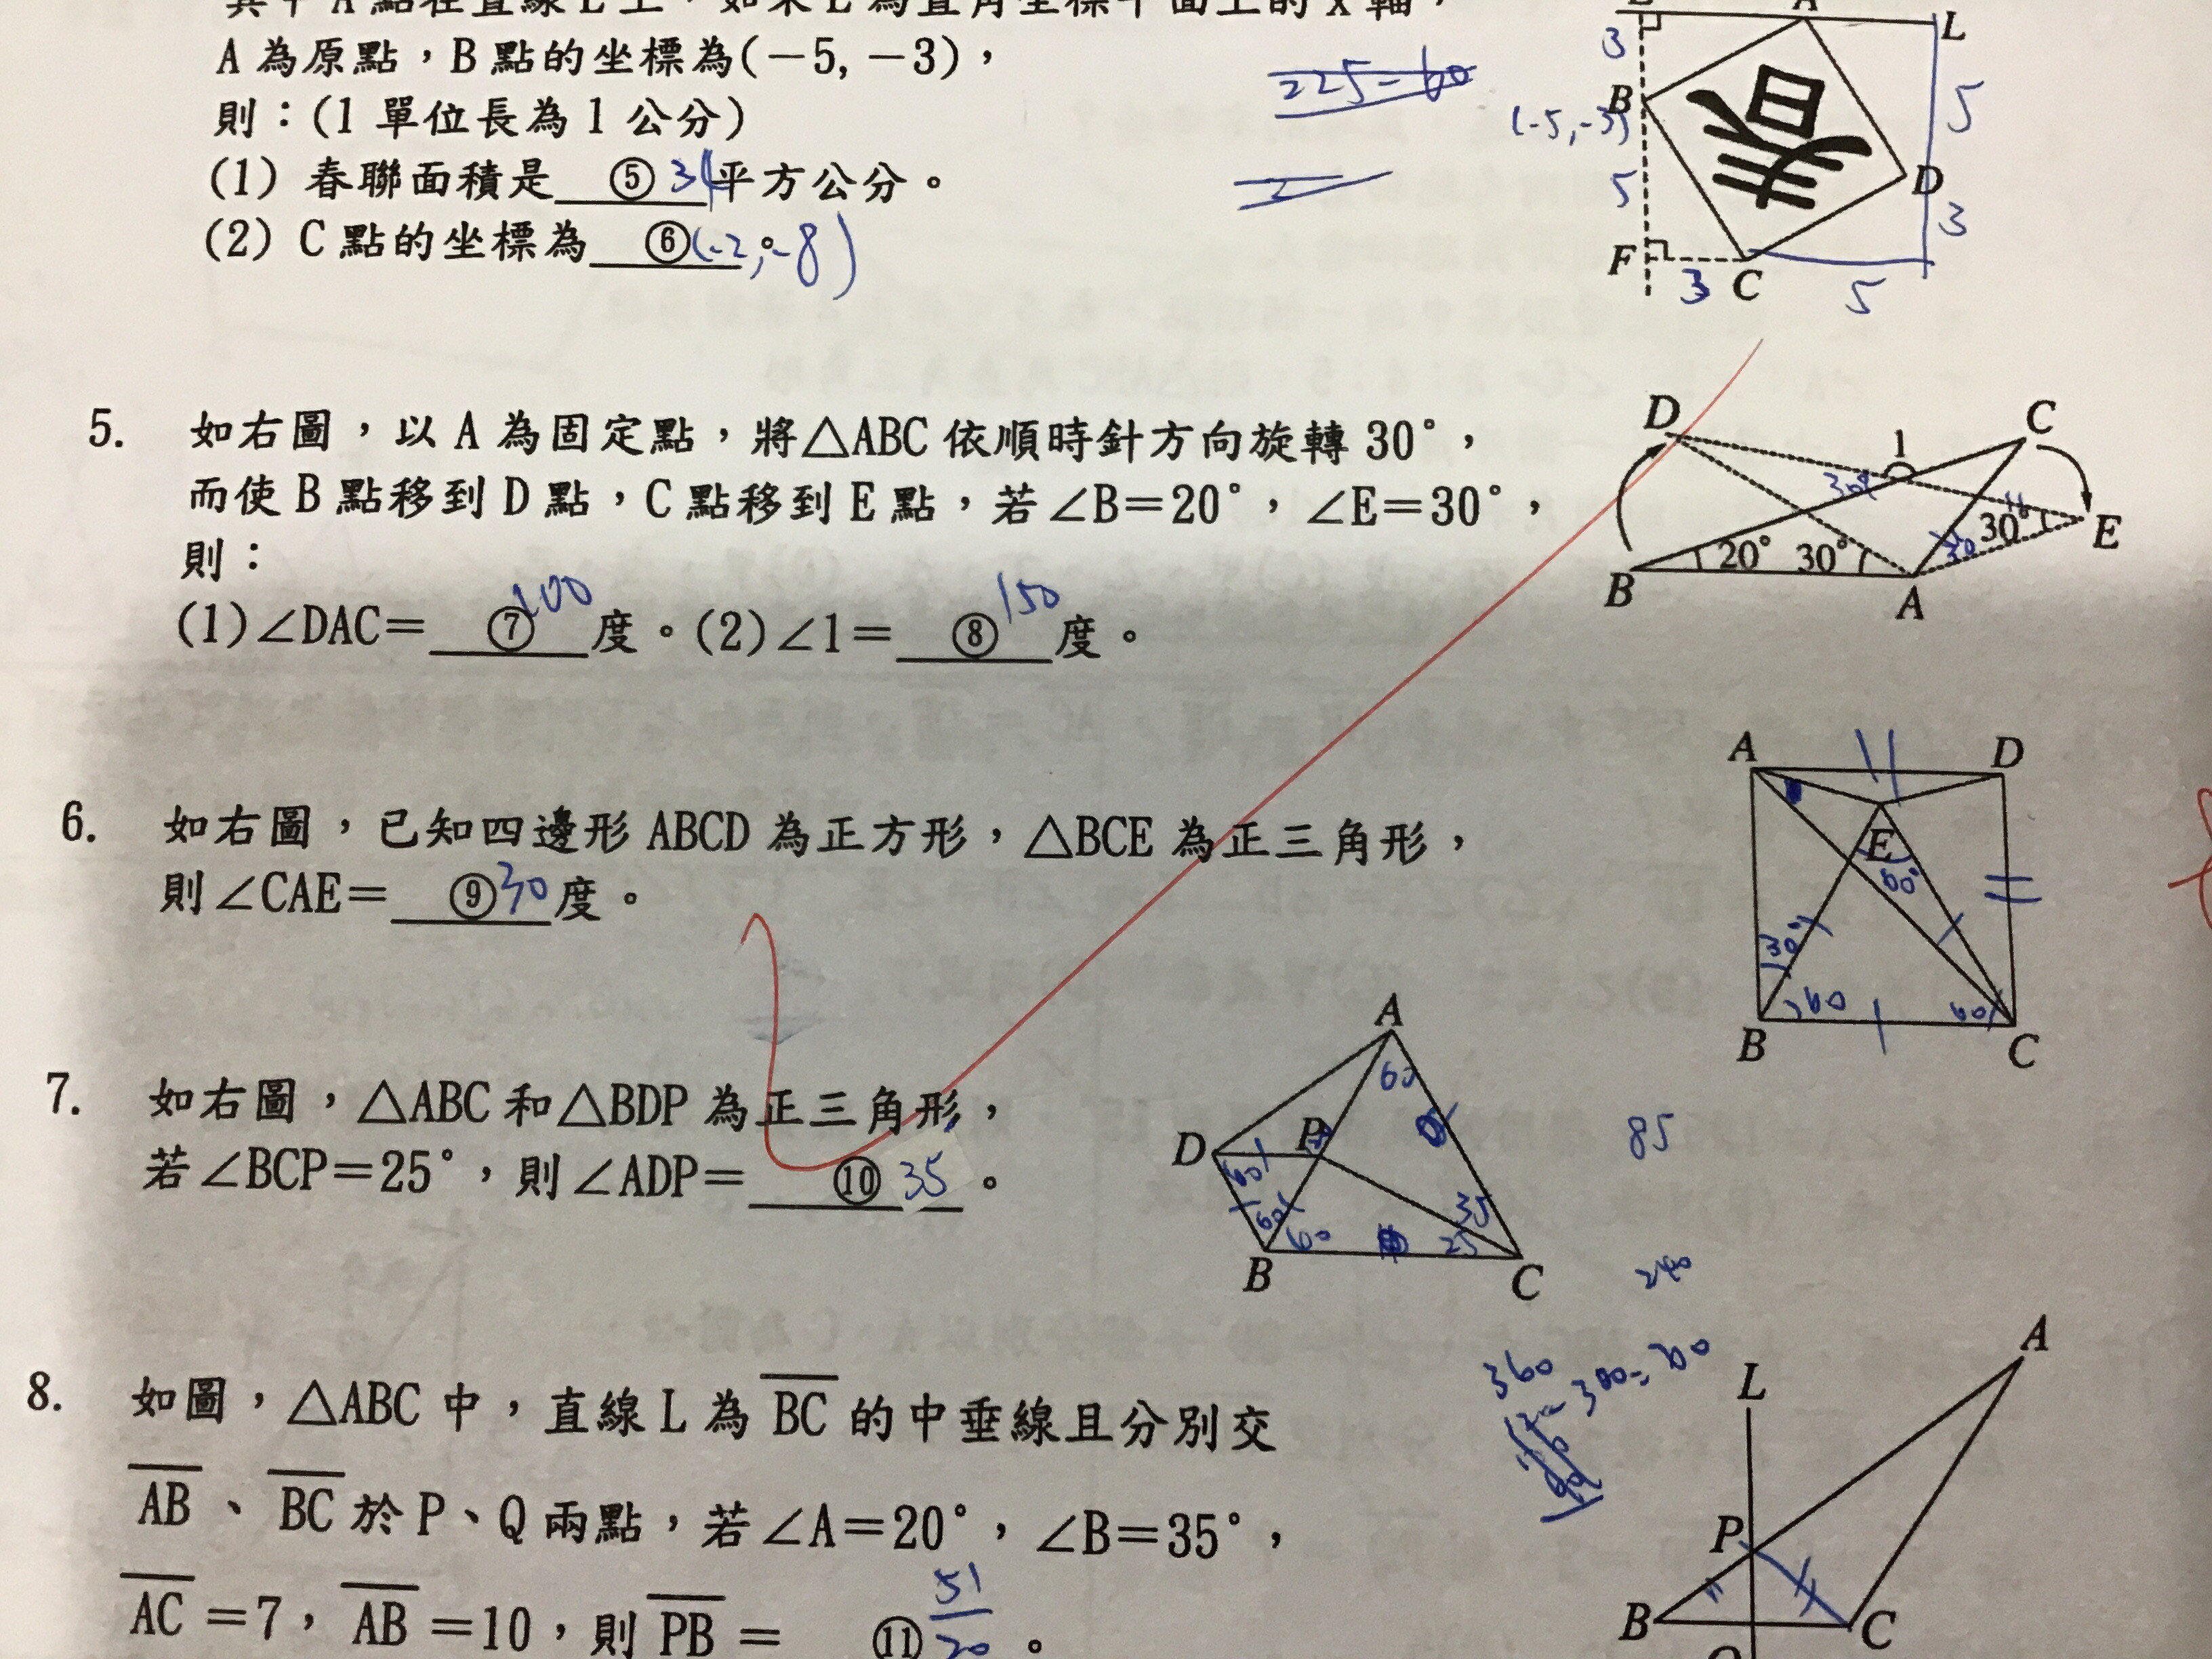 A 為原點，B 點的坐標為(－5, －3)，
則：(1 單位長為 1 公分)
(1) 春聯面積是 ⑤ 34 平方公分。
(2) C 點的坐標為 ⑥ (-2, -8)。
225-60
A
L
3
B
(-5,-3)
5
5
D
3
F
3
C
5
5. 如右圖，以 A 為固定點，將△ABC 依順時針方向旋轉 30°，
而使 B 點移到 D 點，C 點移到 E 點，若∠B＝20°，∠E＝30°，
則：
(1)∠DAC＝ ⑦ 100 度。(2)∠1＝ ⑧ 150 度。
D
1
C
30°
30°
30
E
20°
30°
B
A
6. 如右圖，已知四邊形 ABCD 為正方形，△BCE 為正三角形，
則∠CAE＝ ⑨ 30 度。
A
D
E
60°
30°
60
60
B
C
7. 如右圖，△ABC 和△BDP 為正三角形，
若∠BCP＝25°，則∠ADP＝ ⑩ 35 。
A
60
D
P
60
60
60
35
25
B
C
85
240
360
8. 如圖，△ABC 中，直線 L 為 BC 的中垂線且分別交
AB、BC 於 P、Q 兩點，若∠A＝20°，∠B＝35°，
AC＝7，AB＝10，則 PB＝ ⑪ 51/20 。
A
L
P
B
C